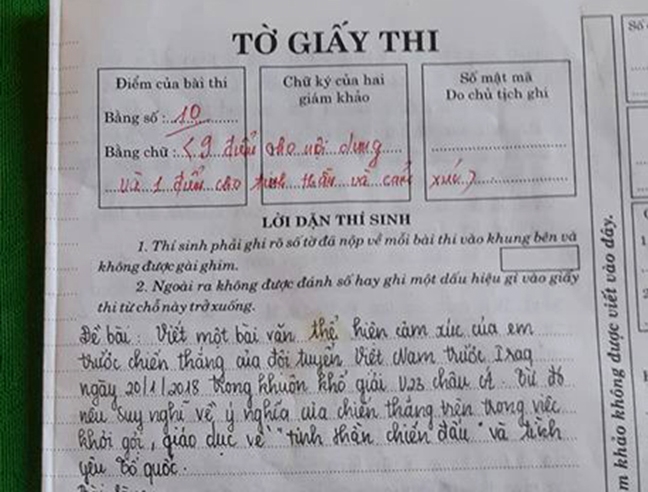 TỜ GIẤY THI
Điểm của bài thi
Bằng số : 10
Bằng chữ : (9 điểm cho nội dung
và 1 điểm cho tinh thần và cảm xúc)
Chữ ký của hai
giám khảo
Số mật mã
Do chủ tịch ghi
LỜI DẶN THÍ SINH
1. Thí sinh phải ghi rõ số tờ đã nộp về mỗi bài thi vào khung bên và
không được gài ghim.
2. Ngoài ra không được đánh số hay ghi một dấu hiệu gì vào giấy
thi từ chỗ này trở xuống.
Đề bài : Viết một bài văn thể hiện cảm xúc của em
trước chiến thắng của đội tuyển Việt Nam trước Iraq
ngày 20/1/2018 trong khuôn khổ giải U23 châu Á. Từ đó
nêu suy nghĩ về ý nghĩa của chiến thắng trên trong việc
khơi gợi, giáo dục về "tinh thần chiến đấu" và tình
yêu Tổ quốc.
m khảo không được viết vào đây.
Số
1
2.